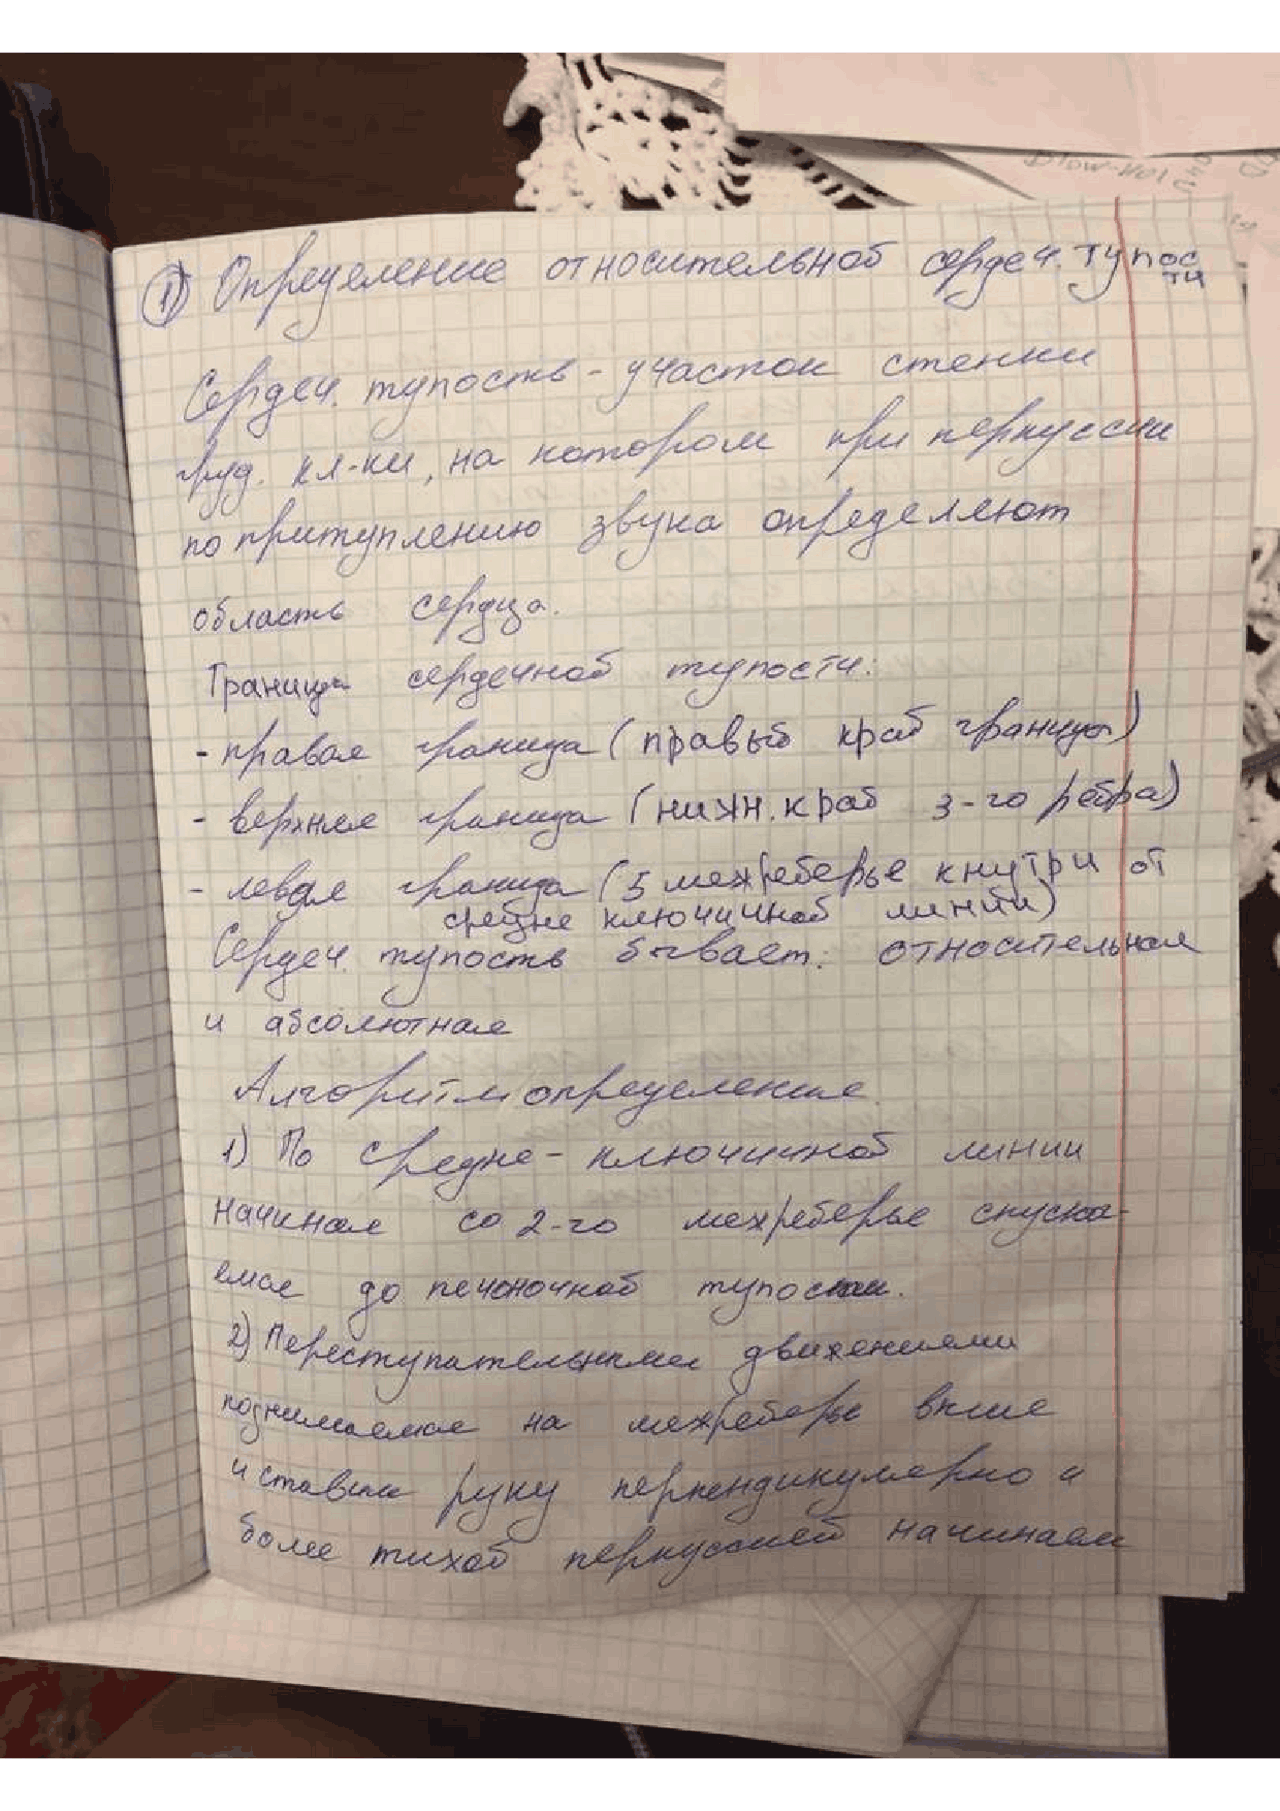 Blow-Hol
1) Определение относительной сердеч. тупос
ти
Сердеч. тупость - участок стенки
груд. кл-ки, на котором при перкуссии
по притуплению звука определяют
область сердца.
Граница сердечной тупости:
- правая граница (правый край границы)
- верхняя граница (нижн. край 3-го ребра)
- левая граница (5 межреберье кнутри от
средне ключичной линии)
Сердеч. тупость бывает: относительная
и абсолютная
Алгоритм определение
1) По средне-ключичной линии
начиная со 2-го межреберье спуска-
емся до печоночной тупости.
2) Переступательными движениями
поднимаемся на межреберье выше
и ставим руку перпендикулярно и
более тихой перкуссией начинаем